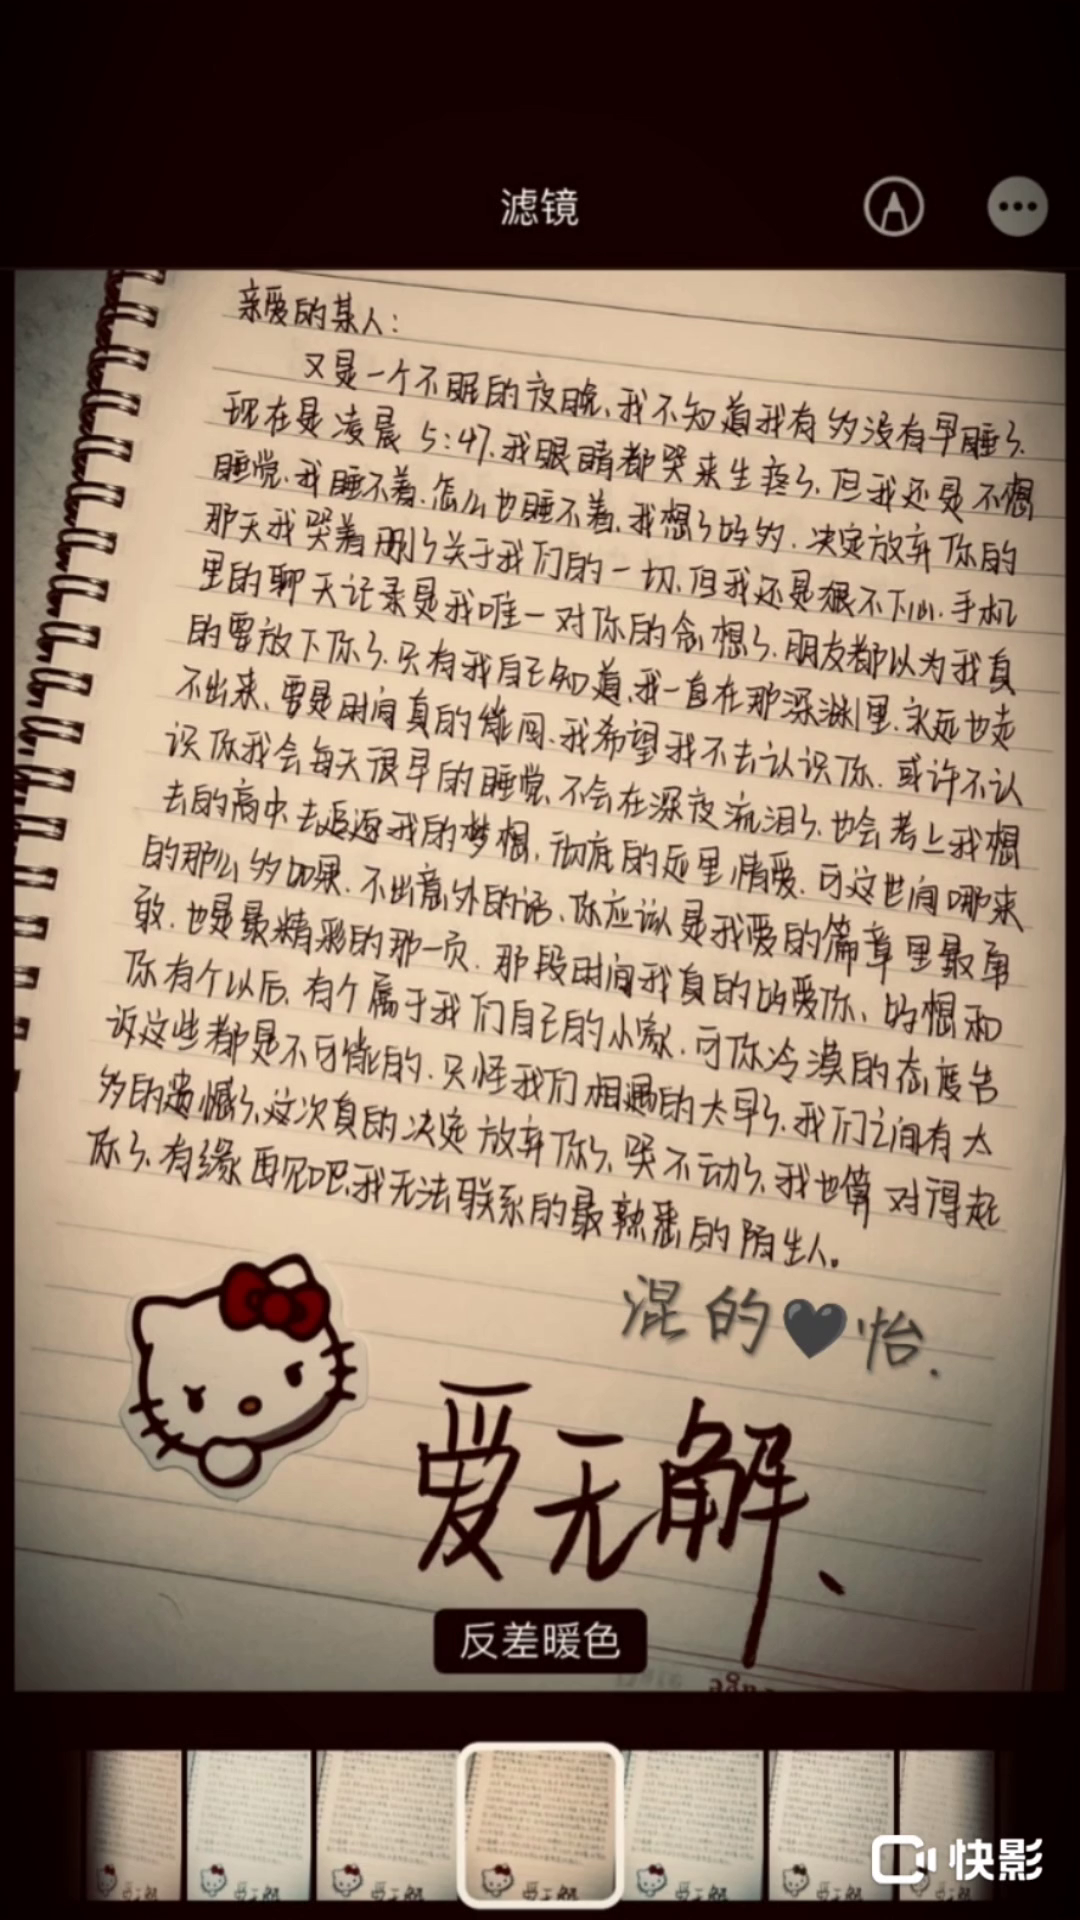 滤镜
亲爱的某人：
又是一个不眠的夜晚、我不知道我有多没有早睡了、
现在是凌晨 5:47、我眼睛都哭来生疼了、但我还是不想
睡觉、我睡不着、怎么也睡不着、我想了好多、决定放弃你的
那天我哭着删了关于我们的一切、但我还是狠不下心、手机
里的聊天记录是我唯一对你的念想了、朋友都以为我真
的要放下你了、只有我自己知道、我一直在那深渊里、永远也走
不出来、要是时间真的能囘、我希望我不去认识你、或许不认
识你我会每天很早的睡觉、不会在深夜流泪了、也会考上我想
去的高中、去追逐我的梦想、彻底的远里情爱、可这世间哪来
的那么多如果、不出意外的话、你应该是我爱的篇章里最勇
敢、也是最精彩的那一页、那段时间我真的好爱你、好想和
你有个以后、有个属于我们自己的小家、可你冷漠的态度告
诉这些都是不可能的、只怪我们相遇的太早了、我们之间有太
多的遗憾了、这次真的决定放弃你了、哭不动了、我也算对得起
你了、有缘再见吧、我无法联系的最熟悉的陌生人。
混的🖤怡.
爱无解、
反差暖色
快影